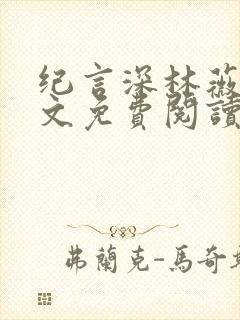 纪言深林薇
文免費閱讀
弗蘭克-馬奇